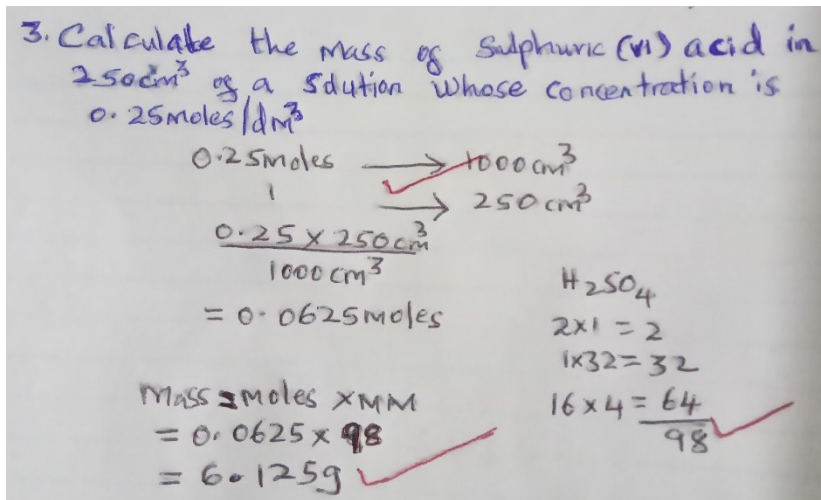 3. Calculate the mass of Sulphuric (VI) acid in
250cm³ of a solution whose concentration is
0.25moles/dm³
0.25moles → 1000cm³
→ 250cm³
0.25 × 250cm³
1000cm³
= 0.0625moles
H₂SO₄
2×1 = 2
1×32 = 32
16×4 = 64
98
Mass = moles × MM
= 0.0625 × 98
= 6.125g